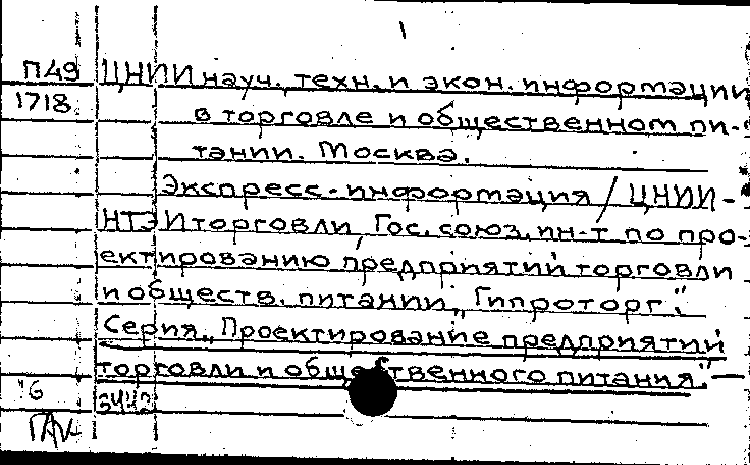 П49 ЦНИИ науч., техн. и экон. информации
1718 в торговле и общественном пи-
тании. Москва.
Экспресс-информация / ЦНИИ-
НТЭИторговли, Гос. союз. ин-т по про-
ектированию предприятий торговли
и обществ. питании „Гипроторг".
Серия „Проектирование предприятий
торговли и общественного питания".—
16
3442